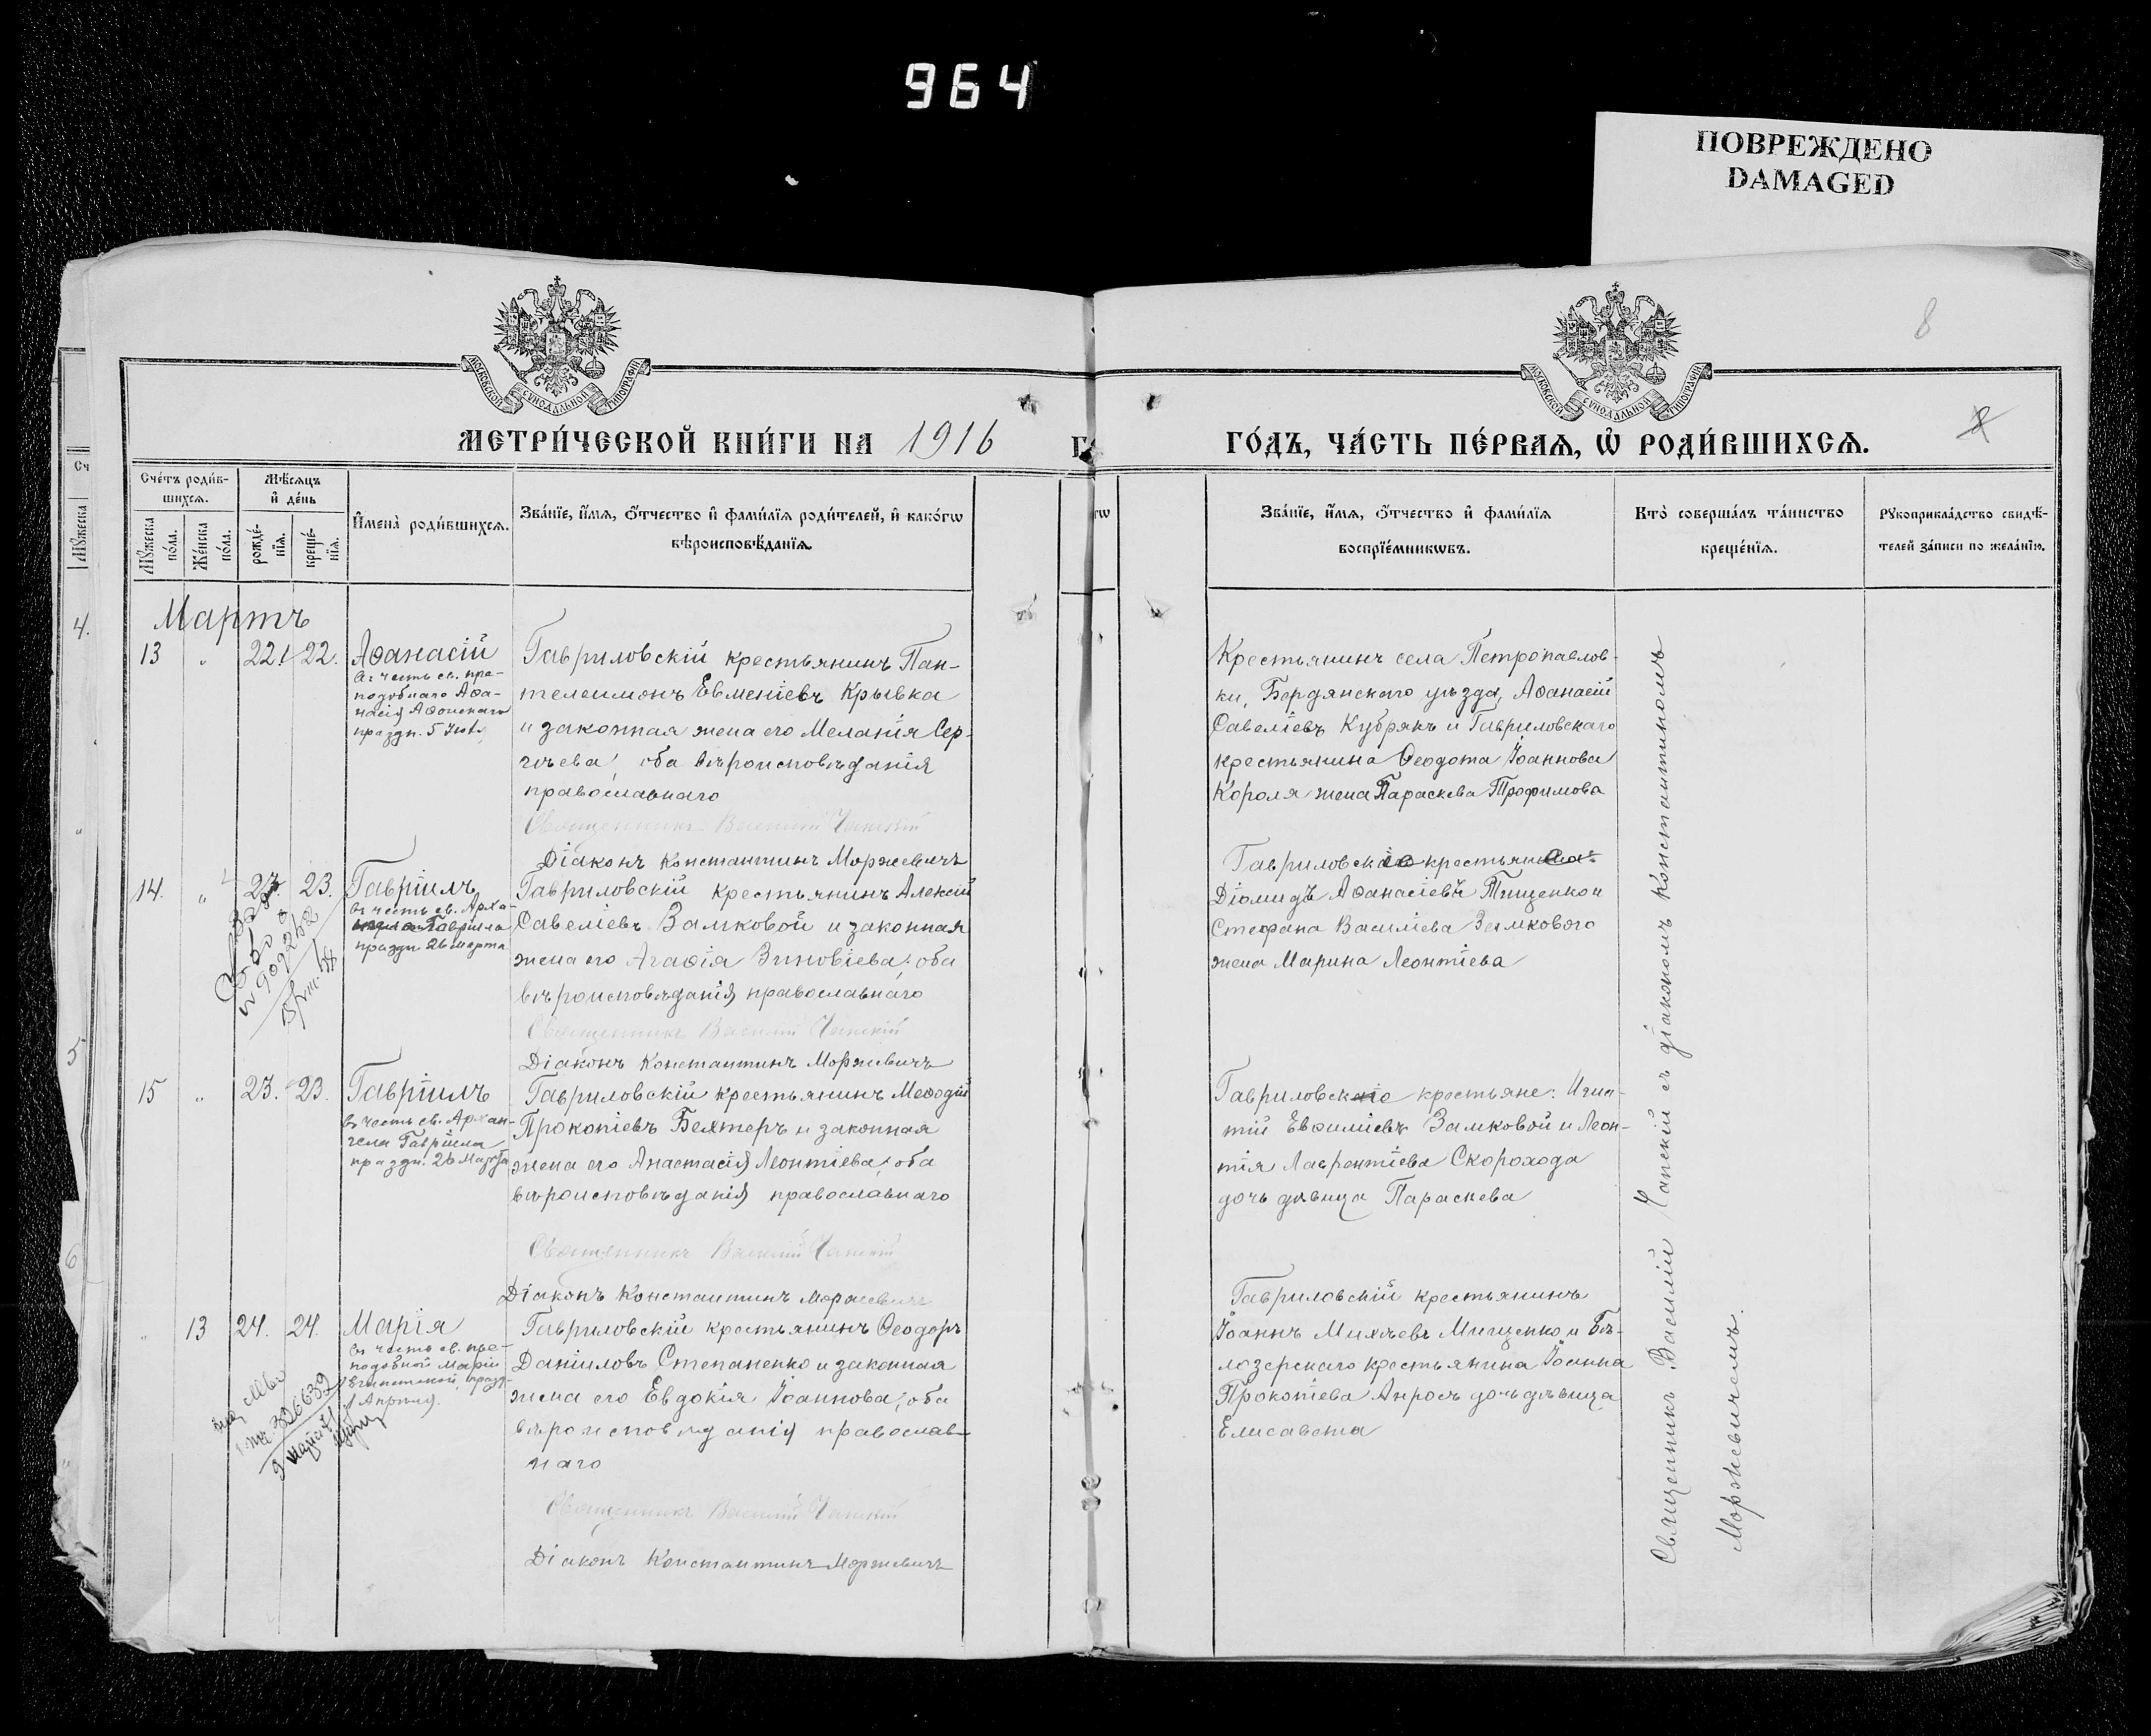 964
ПОВРЕЖДЕНО
DAMAGED
8
МОСКОВСКОЙ СУНОДАЛЬНОЙ ТИПОГРАФІИ
МОСКОВСКОЙ СУНОДАЛЬНОЙ ТИПОГРАФІИ
МЕТРИ́ЧЕСКОЙ КНИ́ГИ НА 1916
ГО́ДЪ, ЧА́СТЬ ПЕ́РВАЯ, Ѡ҆ РОДИ́ВШИХСЯ.
Сче́тъ роди́в-
шихся.
Мѣ́сяцъ
и҆ де́нь
Мꙋ́жеска
по́ла.
Же́нска
по́ла.
рожде́-
нїя.
креще́-
нїя.
И҆мена̀ роди́вшихся.
Зва́нїе, и҆́мя, ѻ҆́тчество и҆ фами́лїя роди́телей, и҆ како́гѡ
вѣроисповѣ́данїя.
Зва́нїе, и҆́мя, ѻ҆́тчество и҆ фами́лїя
воспрїе́мникѡвъ.
Кто̀ соверша́лъ та́инство
креще́нїя.
Рꙋкоприкла́дство свидѣ́-
телей за́писи по жела́нїю.
Сч
Мꙋ́жеска
4.
5
6
Мартъ
13 " 22. 22. Аѳанасій
въ честь св. пре-
подобнаго Аѳа-
насія Аѳонскаго
праздн. 5 Іюля
Гавриловскій крестьянинъ Пан-
телеимонъ Евменіевъ Крывка
и законная жена его Меланія Сер-
гѣева, оба вѣроисповѣданія
православнаго
Священникъ Василій Чапскій
Діаконъ Константинъ Моржевичъ
Крестьянинъ села Петропавлов-
ки, Бердянскаго уѣзда, Аѳанасій
Савеліевъ Кубрякъ и Гавриловскаго
крестьянина Ѳеодота Іоаннова
Короля жена Параскева Трофимова
14. " 23. Гавріилъ
въ честь св. Арха-
нгела Гавріила
праздн. 26 марта
Гавриловскій крестьянинъ Алексій
Савеліевъ Замковой и законная
жена его Агаѳія Зиновіева, оба
вѣроисповѣданія православнаго
Священникъ Василій Чапскій
Діаконъ Константинъ Моржевичъ
Діомидъ Аѳанасіевъ Тищенко и
Стефана Василіева Замкового
жена Марина Леонтіева
15 " 23. 23. Гавріилъ
въ честь св. Архан-
гела Гавріила
праздн. 26 Марта
Гавриловскій крестьянинъ Меѳодій
Прокопіевъ Бехтеръ и законная
жена его Анастасія Леонтіева, оба
вѣроисповѣданія православнаго
Священникъ Василій Чапскій
Діаконъ Константинъ Моржевичъ
крестьяне: Игна-
тій Евѳиміевъ Замковой и Леон-
тія Лаврентіева Скорохода
дочь дѣвица Параскева
" 13 24. 24. Марія
въ честь св. пре-
подобной Маріи
Египетской, празд.
1 Апрѣля.
Гавриловскій крестьянинъ Ѳеодоръ
Даніиловъ Степаненко и законная
жена его Евдокія Іоаннова, оба
вѣроисповѣданія православ-
наго
Священникъ Василій Чапскій
Діаконъ Константинъ Моржевичъ
Гавриловскій крестьянинъ
Іоаннъ Михѣевъ Мищенко и Бѣ-
лозерскаго крестьянина Іоанна
Прокопіева Анрось дочь дѣвица
Елисавета
Священникъ Василій Чапскій съ діакономъ Константиномъ
Моржевичемъ.